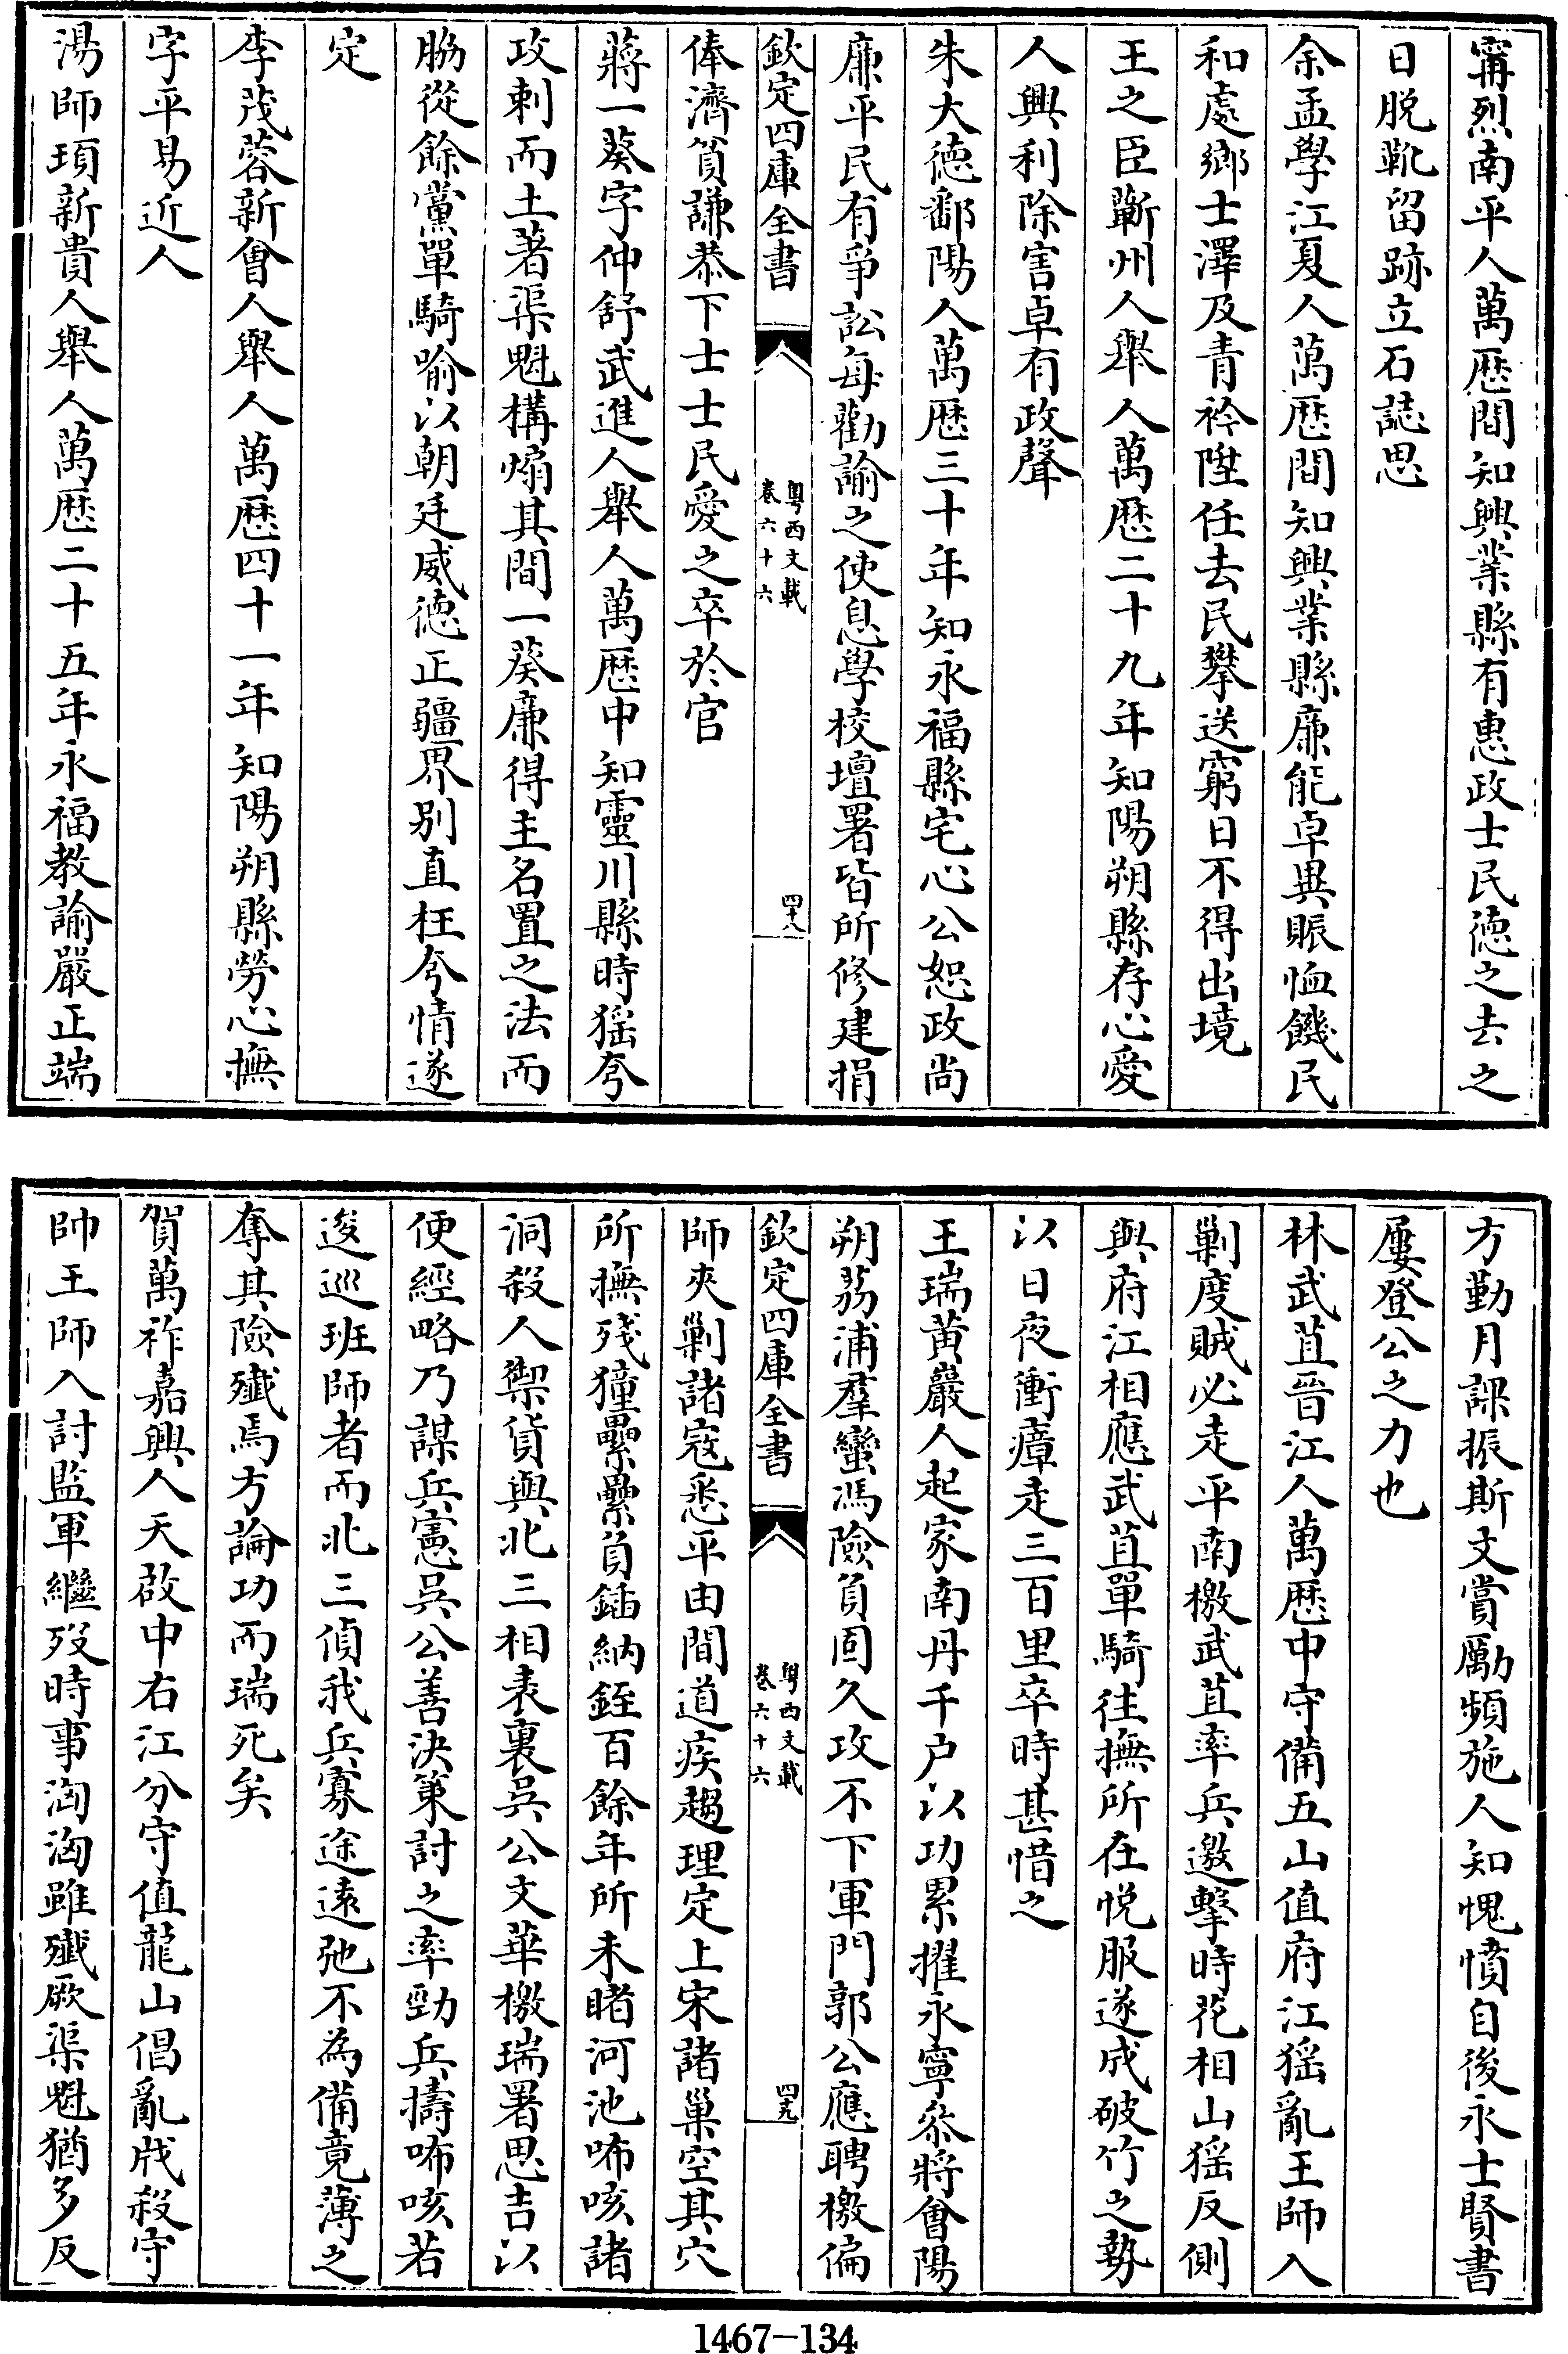 甯烈南平人萬厯間知興業縣有惠政士民徳之去之
日脱靴留跡立石誌思
余孟學江夏人萬厯間知興業縣廉能卓異賑恤饑民
和處鄉士澤及青衿陞任去民攀送窮日不得出境
王之臣蘄州人舉人萬厯二十九年知陽朔縣存心愛
人興利除害卓有政聲
朱大徳鄱陽人萬厯三十年知永福縣宅心公恕政尚
廉平民有爭訟每勸諭之使息學校壇署皆所修建捐
欽定四庫全書
粤西文載
卷六十六
四十八
俸濟貧謙恭下士士民愛之卒於官
蔣一葵字仲舒武進人舉人萬厯中知靈川縣時猺夸
攻剌而土著渠魁構煽其間一葵廉得主名置之法而
脇從餘黨單騎喻以朝廷威徳正疆界别直枉夸情遂
定
李茂蓉新會人舉人萬厯四十一年知陽朔縣勞心撫
字平易近人
湯師頊新貴人舉人萬厯二十五年永福教諭嚴正端
方勤月課振斯文賞勵頻施人知愧憤自後永士賢書
屢登公之力也
林武苴晉江人萬厯中守備五山值府江猺亂王師入
剿度賊必走平南檄武苴率兵邀擊時花相山猺反側
與府江相應武苴單騎往撫所在悦服遂成破竹之勢
以日夜衝瘴走三百里卒時甚惜之
王瑞黄巖人起家南丹千户以功累擢永寧叅將會陽
朔荔浦羣蠻馮險負固久攻不下軍門郭公應聘檄偏
欽定四庫全書
粤西文載
卷六十六
四十九
師夾剿諸寇悉平由間道疾趨理定上宋諸巢空其穴
所撫殘獞纍纍負鍤納銍百餘年所未睹河池咘咳諸
洞殺人禦貨與北三相表裏吳公文華檄瑞署思吉以
便經略乃謀兵憲吳公善決策討之率勁兵擣咘咳若
逡巡班師者而北三偵我兵寡途遠弛不為備竟薄之
奪其險殱焉方論功而瑞死矣
賀萬祚嘉興人天啟中右江分守值龍山倡亂戕殺守
帥王師入討監軍繼歿時事洶洶雖殱厥渠魁猶多反
1467-134